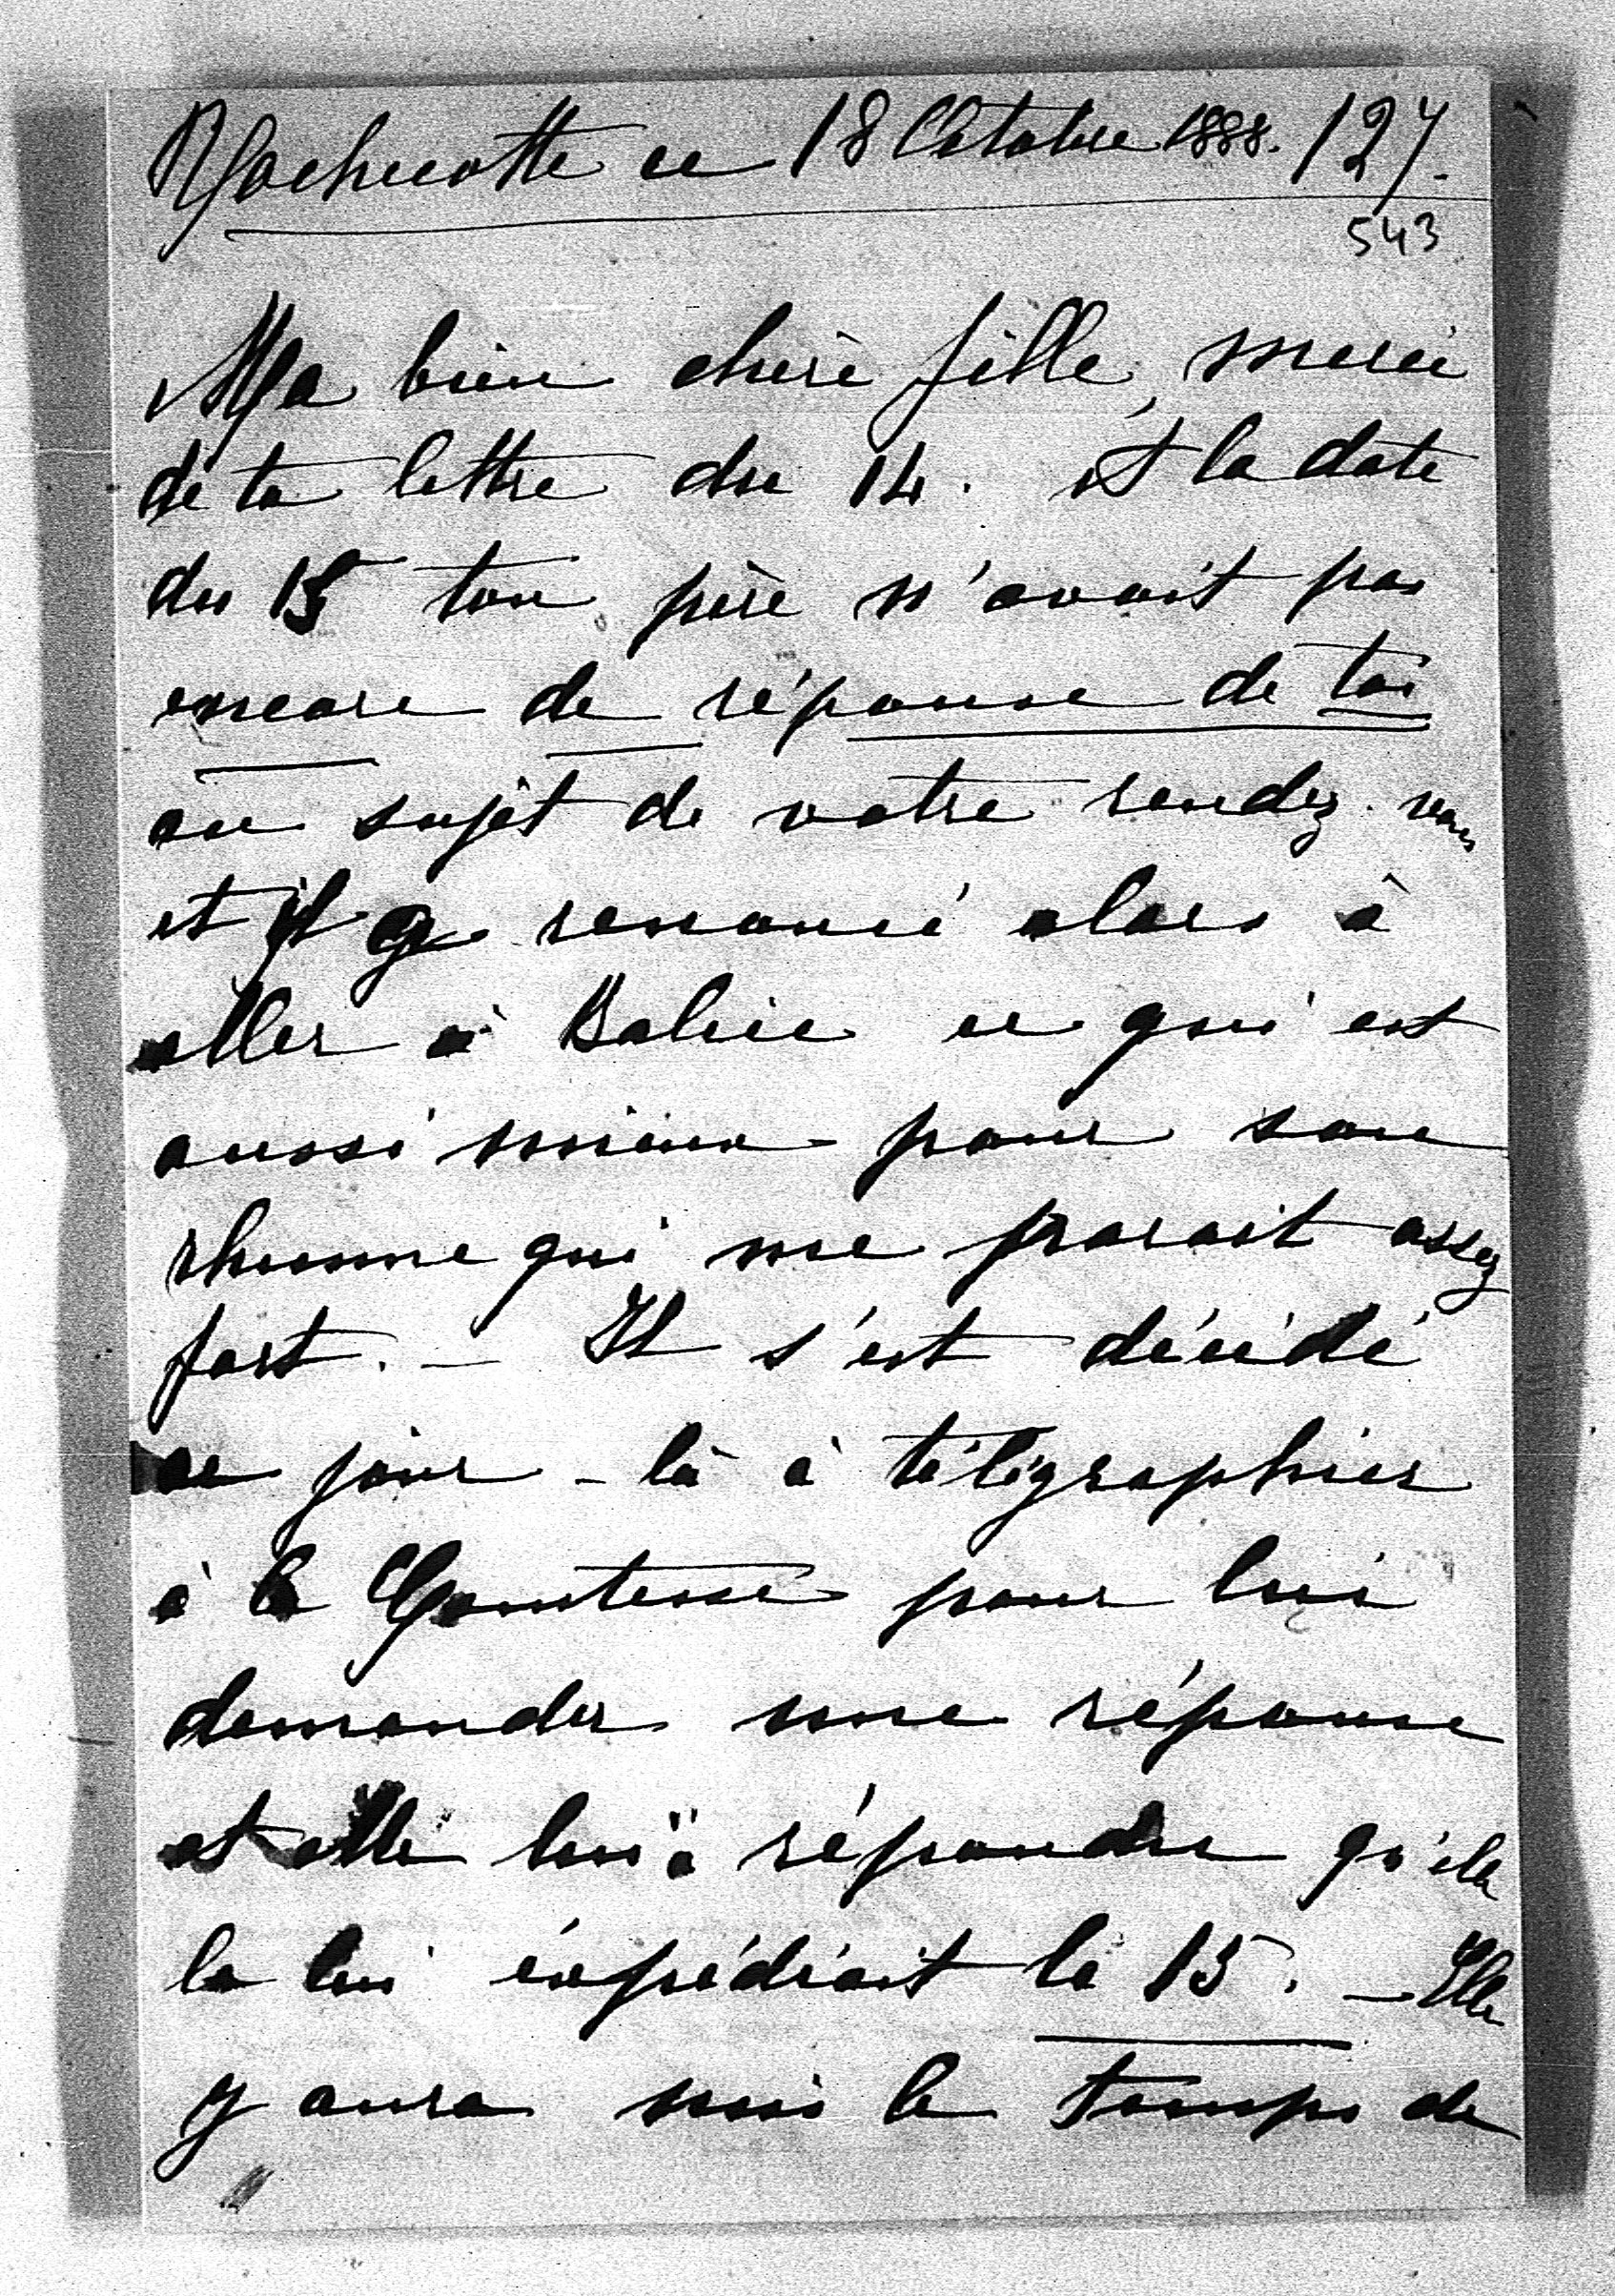 Rochecotte ce 18 Octobre 1888. 127.
543
Ma bien chère fille, merci
de ta lettre du 14. A la date
du 15 ton père n'avait pas
encore de réponse de toi
au sujet de votre rendez-vous
et il a renoncé alors à
aller à ce qui est
aussi mieux pour son
rhume qui me parait assez
fort. — Il s'est décidé
ce jour-là à télégraphier
à la Comtesse pour lui
demander une réponse
et elle lui a répondu qu'elle
la lui expédiait le 15. — Elle
y aura mis le temps de